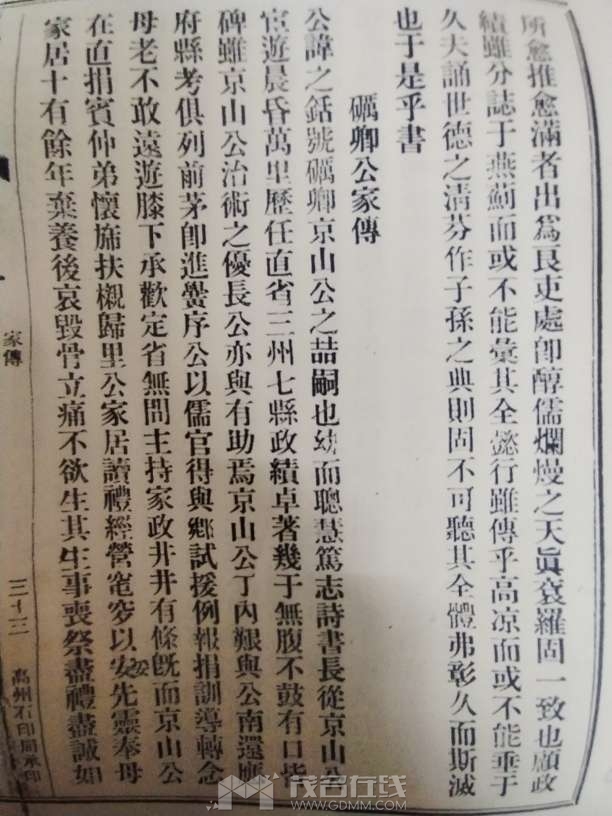 所愈推愈滿者出爲良吏處卽醇儒爛熳之天眞袞羅固一致也顧政
績雖分誌于燕薊而或不能彙其全懿行雖傳乎高凉而或不能垂于
久夫誦世德之淸芬作子孫之典則固不可聽其全體弗彰久而斯滅
也于是乎書
礪卿公家傳
公諱之銛號礪卿京山公之喆嗣也幼而聰慧篤志詩書長從京山公
宦遊晨昏萬里歷任直省三州七縣政績卓著幾于無腹不鼓有口皆
碑雖京山公治術之優長公亦與有助焉京山公丁內艱與公南還應
府縣考俱列前茅卽進黌序公以儒官得與鄕試援例報捐訓導轉念
母老不敢遠遊膝下承歡定省無間主持家政井井有條旣而京山公
在直捐賓仲弟懷旃扶櫬歸里公家居讀禮經營窀穸以安先靈奉母
家居十有餘年棄養後哀毀骨立痛不欲生其生事喪祭盡禮盡誠如
家傳
三十三
高州石印局承印
茂名在线
WWW.GDMM.COM